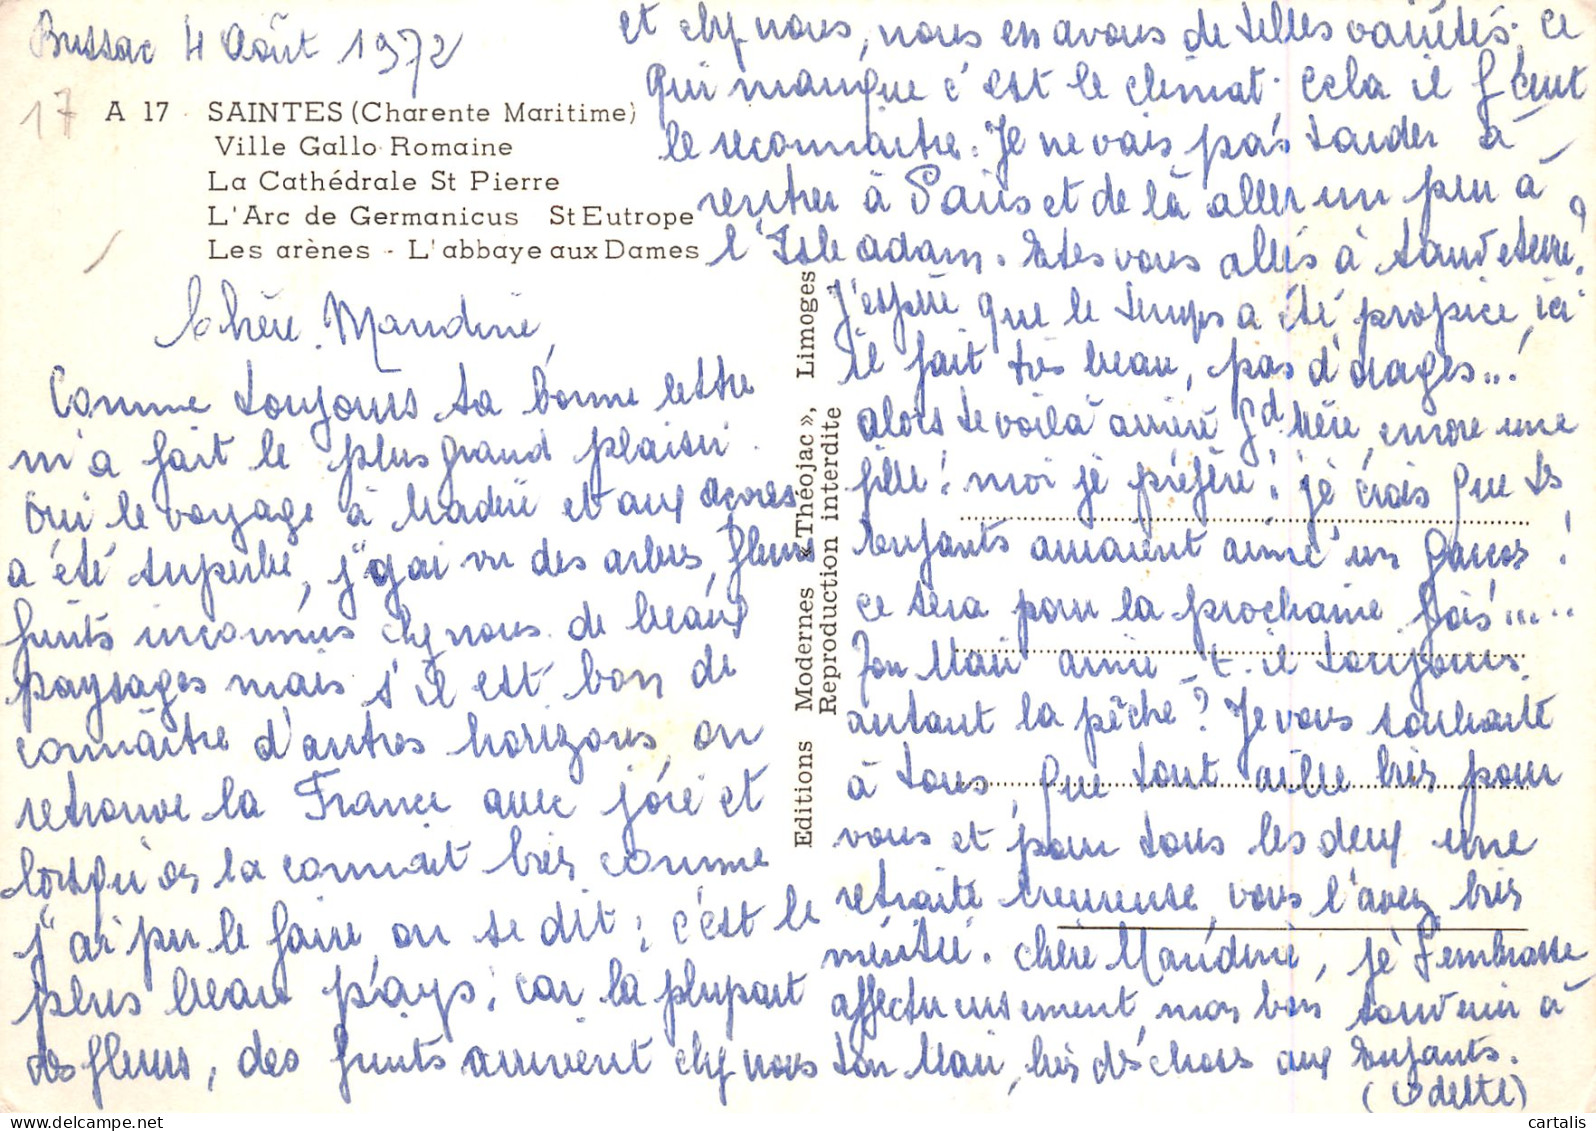 Bussac 4 Août 1972
17
A 17 SAINTES (Charente Maritime)
Ville Gallo Romaine
La Cathédrale St Pierre
L'Arc de Germanicus St Eutrope
Les arènes - L'abbaye aux Dames
Chère Maudine,
Comme toujours ta bonne lettre
m'a fait le plus grand plaisir.
Oui le voyage à Madère et aux açores
a été superbe, j'y ai vu des arbres, fleurs
fruits inconnus chez nous de beaux
paysages mais s'il est bon de
connaître d'autres horizons, on
retrouve la France avec joie et
lorsqu'on la connait bien comme
j'ai pu le faire, on se dit; c'est le
plus beau pays; car la plupart
des fleurs, des fruits arrivent chez nous
et chez nous, nous en avons de telles variétés; ce
qui manque c'est le climat. cela il faut
le reconnaître. Je ne vais pas tarder à
rentrer à Paris et de là aller un peu à
l'Isle adam. Etes vous allés à Sauveterre?
J'espère que le temps a été propice, ici
il fait très beau, pas d'orages...!
alors te voilà arrière Gd Mère, encore une
fille! moi je préfère! je crois que tes
enfants auraient aimé un garçon!
ce sera pour la prochaine fois.....
Ton Mari aime-t-il toujours
autant la pêche? Je vous souhaite
à tous, que tout aille bien pour
vous et pour tous les deux une
retraite heureuse, vous l'avez bien
méritée. chère Maudine, je t'embrasse
affectueusement, mon bon souvenir à
ton Mari, bien des choses aux enfants.
(Odette)
Editions Modernes «Théojac», Limoges
Reproduction interdite
cartalis.com